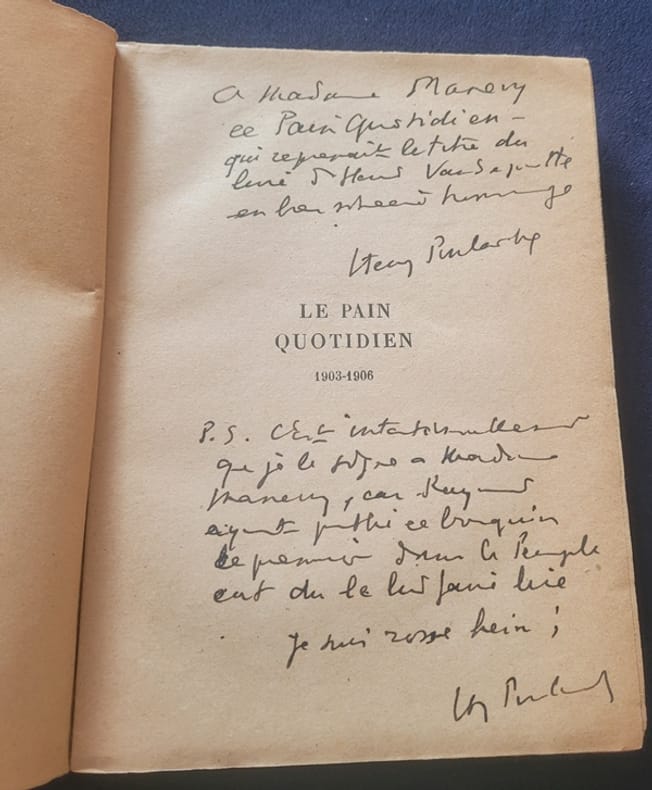 A Madame Manevy
ce Pain Quotidien –
qui reprenait le titre du
livre d'Henri Vandeputte
en bon souvenir hommage
Henry Poulaille
LE PAIN
QUOTIDIEN
1903-1906
P.S. C'Est intentionnellement
que je le signe a Madame
Manevy, car Raymond
ayant publié ce bouquin
le premier dans le Peuple
eut du le lui faire lire
Je suis rosse hein !
Hy Poulaille